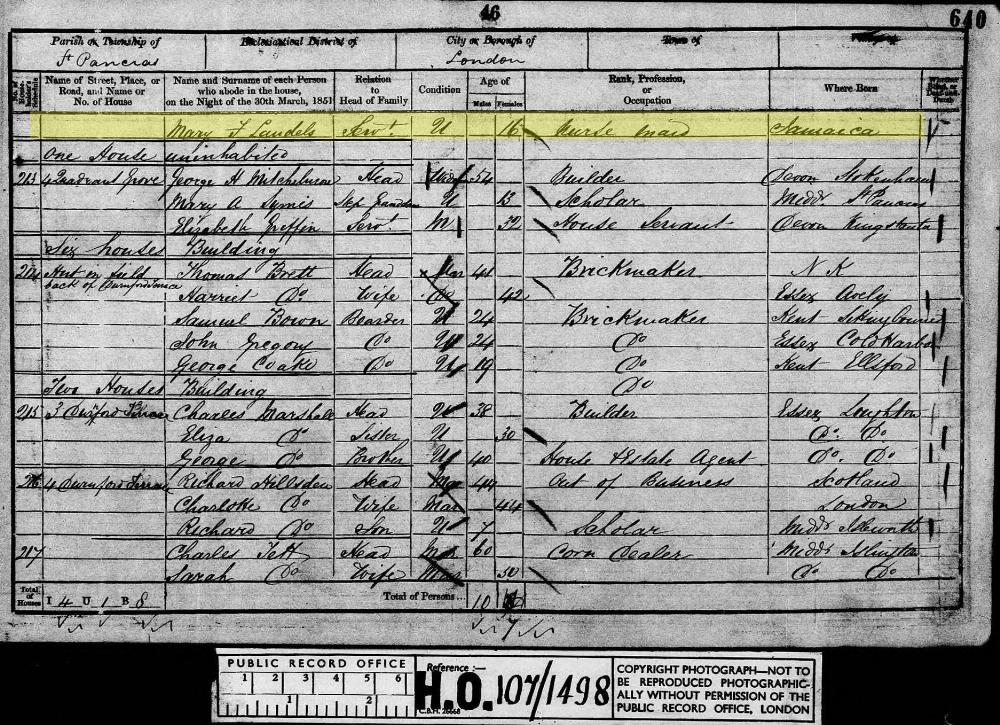 46
640
Parish or Township of
Ecclesiastical District of
City or Borough of
Town of
St Pancras
London
Name of Street, Place, or Road, and Name or No. of House
Name and Surname of each Person who abode in the house, on the Night of the 30th March, 1851
Relation to Head of Family
Condition
Age of
Males Females
Rank, Profession, or Occupation
Where Born
Mary F Landels Servt. U 16 Nurse maid Jamaica
One House uninhabited
213 4 Quadrant Grove George H Head 54 Builder Devon
Mary A Symes Step U 13 Scholar Middx St Pancras
Elizabeth Griffin Servt. M 32 House Servant Devon
Six houses Building
214 Hut in field Thomas Brett Head Mar 41 Brickmaker N K
back of
Harriet Do Wife Do 42 Essex Avely
Samuel Bown Boarder U 24 Brickmaker Kent
John Gregory Do U 24 Do Essex Cold Harbor
George Coake Do U 19 Do Kent Ellsford
Two Houses Building Do
215 3 Charles Marshall Head U 38 Builder Essex Loughton
Eliza Do Sister U 30 Do. Do.
George Do Brother U 40 House & Estate Agent Do. Do.
216 4 Durnford Terrace Richard Hillsden Head Mar 44 Out of Business Scotland
Charlotte Do Wife Mar 44 London
Richard Do Son U 7 Scholar Middx Isleworth
217 Charles Tett Head Mar 60 Corn Dealer Middx Islington
Sarah Do Wife Mar 50 Do Do
Total of Houses I 4 U 1 B 8
Total of Persons... 10
PUBLIC RECORD OFFICE
1 2 3 4 5 6
1 2
Reference :—
H.O. 107/1498
C.B.H. 26668
COPYRIGHT PHOTOGRAPH—NOT TO
BE REPRODUCED PHOTOGRAPHIC-
ALLY WITHOUT PERMISSION OF THE
PUBLIC RECORD OFFICE, LONDON